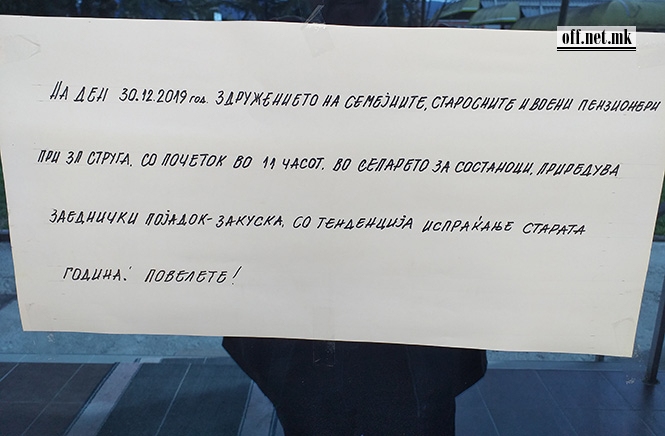 off.net.mk
НА ДЕН 30.12.2019 год. ЗДРУЖЕНИЕТО НА СЕМЕЈНИТЕ, СТАРОСНИТЕ И ВОЕНИ ПЕНЗИОНЕРИ
ПРИ ЗП СТРУГА, СО ПОЧЕТОК ВО 11 ЧАСОТ, ВО СЕПАРЕТО ЗА СОСТАНОЦИ, ПРИРЕДУВА
ЗАЕДНИЧКИ ПОЈАДОК-ЗАКУСКА, СО ТЕНДЕНЦИЈА ИСПРАЌАЊЕ СТАРАТА
ГОДИНА! ПОВЕЛЕТЕ!